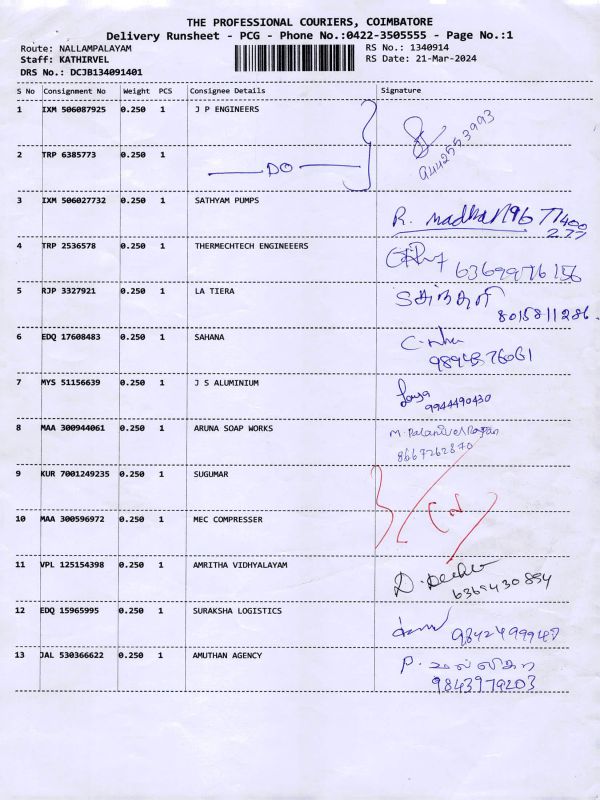 THE PROFESSIONAL COURIERS, COIMBATORE
Delivery Runsheet - PCG - Phone No.:0422-3505555 - Page No.:1
Route: NALLAMPALAYAM RS No.: 1340914
Staff: KATHIRVEL RS Date: 21-Mar-2024
DRS No.: DCJB134091401
S No Consignment No Weight PCS Consignee Details Signature
1 IXM 506087925 0.250 1 J P ENGINEERS
9442553993
2 TRP 6385773 0.250 1
DO
3 IXM 506027732 0.250 1 SATHYAM PUMPS
R. Madhan
4 TRP 2536578 0.250 1 THERMECHTECH ENGINEEERS
6369976156
5 RJP 3327921 0.250 1 LA TIERA
8015811286.
6 EDQ 17608483 0.250 1 SAHANA
9894376061
7 MYS 51156639 0.250 1 J S ALUMINIUM
Jaya
9944490430
8 MAA 300944061 0.250 1 ARUNA SOAP WORKS
M. Palanivel Rajan
8667262870
9 KUR 7001249235 0.250 1 SUGUMAR
10 MAA 300596972 0.250 1 MEC COMPRESSER
11 VPL 125154398 0.250 1 AMRITHA VIDHYALAYAM
6369430894
12 EDQ 15965995 0.250 1 SURAKSHA LOGISTICS
9842499947
13 JAL 530366622 0.250 1 AMUTHAN AGENCY
9843979203